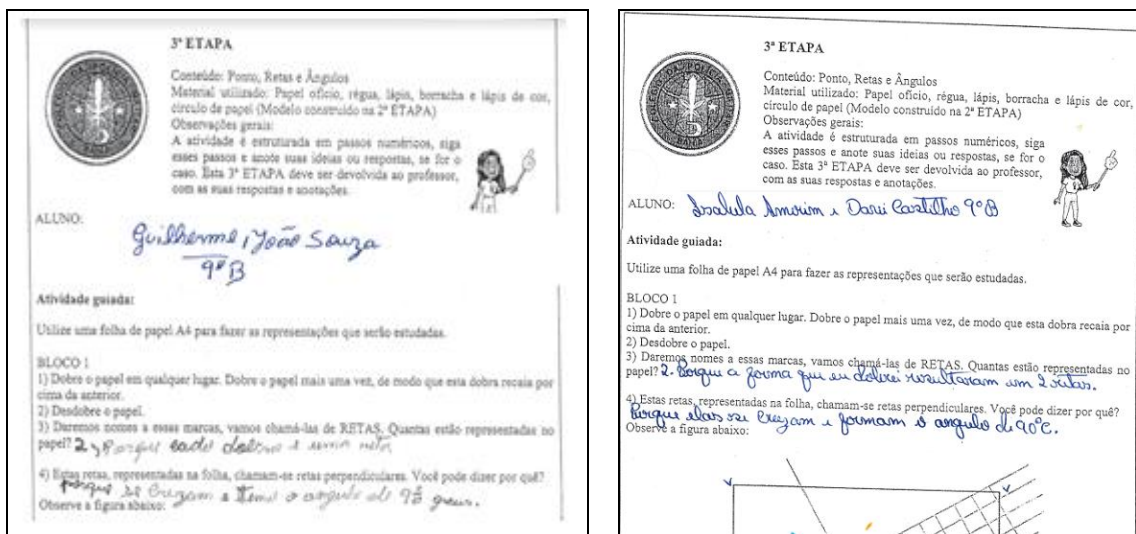 3ª ETAPA
Conteúdo: Ponto, Retas e Ângulos
Material utilizado: Papel ofício, régua, lápis, borracha e lápis de cor,
círculo de papel (Modelo construído na 2ª ETAPA)
Observações gerais:
A atividade é estruturada em passos numéricos, siga
esses passos e anote suas ideias ou respostas, se for o
caso. Esta 3ª ETAPA deve ser devolvida ao professor,
com as suas respostas e anotações.
ALUNO:
Guilherme, João Souza
9º B
Atividade guiada:
Utilize uma folha de papel A4 para fazer as representações que serão estudadas.
BLOCO 1
1) Dobre o papel em qualquer lugar. Dobre o papel mais uma vez, de modo que esta dobra recaia por
cima da anterior.
2) Desdobre o papel.
3) Daremos nomes a essas marcas, vamos chamá-las de RETAS. Quantas estão representadas no
papel? 2, Porque cada dobra é uma reta
4) Estas retas, representadas na folha, chamam-se retas perpendiculares. Você pode dizer por quê?
porque se cruzam e o angulo de graus.
Observe a figura abaixo:
3ª ETAPA
Conteúdo: Ponto, Retas e Ângulos
Material utilizado: Papel ofício, régua, lápis, borracha e lápis de cor,
círculo de papel (Modelo construído na 2ª ETAPA)
Observações gerais:
A atividade é estruturada em passos numéricos, siga
esses passos e anote suas ideias ou respostas, se for o
caso. Esta 3ª ETAPA deve ser devolvida ao professor,
com as suas respostas e anotações.
ALUNO: Amorim e Davi Castilho 9º B
Atividade guiada:
Utilize uma folha de papel A4 para fazer as representações que serão estudadas.
BLOCO 1
1) Dobre o papel em qualquer lugar. Dobre o papel mais uma vez, de modo que esta dobra recaia por
cima da anterior.
2) Desdobre o papel.
3) Daremos nomes a essas marcas, vamos chamá-las de RETAS. Quantas estão representadas no
papel? 2. Porque a forma que eu dobrei resultaram um 2 retas.
4) Estas retas, representadas na folha, chamam-se retas perpendiculares. Você pode dizer por quê?
Porque elas se cruzam e formam o angulo de 90°C.
Observe a figura abaixo: